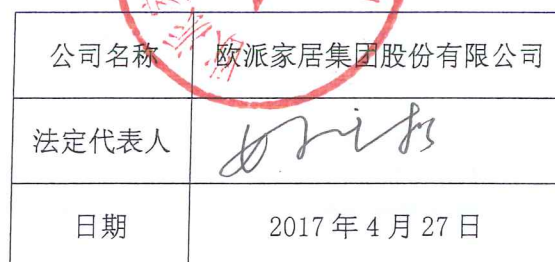 公司名称 欧派家居集团股份有限公司
法定代表人
日期 2017年4月27日